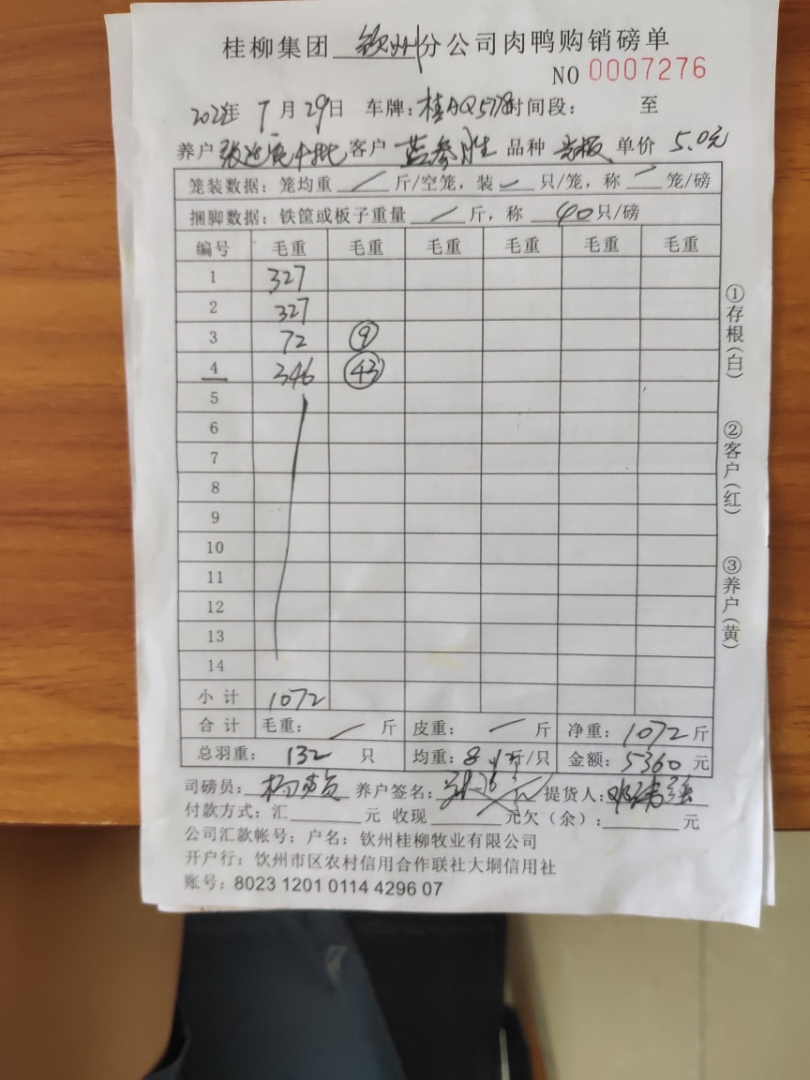 桂柳集团 钦州 分公司肉鸭购销磅单
NO 0007276
7月29日 车牌: 时间段: 至
养户 客户 蓝参胜 品种 单价 5.0元
笼装数据: 笼均重 / 斤/空笼, 装 只/笼, 称 笼/磅
捆脚数据: 铁筐或板子重量 / 斤, 称 40 只/磅
编号 毛重 毛重 毛重 毛重 毛重 毛重
1 327
2 327
3 72 ⑨
4 346 ㊸
5
6
7
8
9
10
11
12
13
14
小计 1072
合计 毛重: / 斤 皮重: / 斤 净重: 1072 斤
总羽重: 132 只 均重: 8.1 斤/只 金额: 5360 元
司磅员: 养户签名: 提货人:
付款方式: 汇 元 收现 元欠(余): 元
公司汇款帐号: 户名: 钦州桂柳牧业有限公司
开户行: 钦州市区农村信用合作联社大垌信用社
账号: 8023 1201 0114 4296 07
①存根(白)
②客户(红)
③养户(黄)